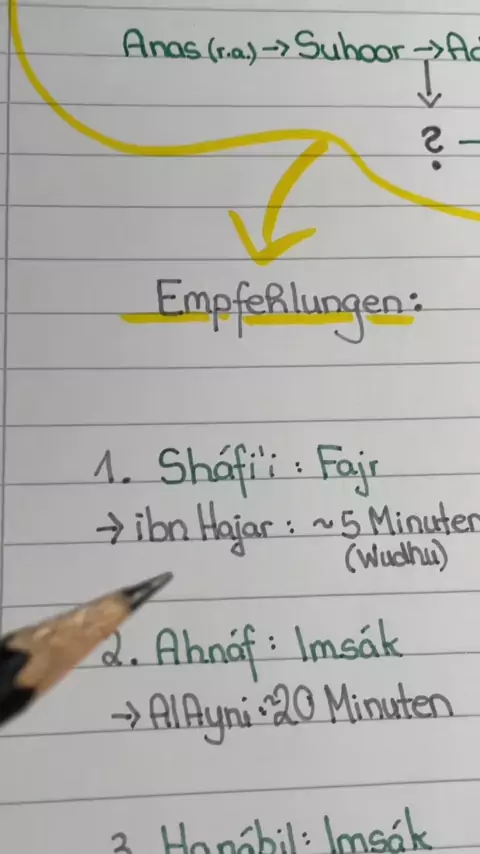 Anas (r.a.) → Suhoor →
↓
?
Empfehlungen:
1. Sháfi'i : Fajr
→ ibn Hajar : ~5 Minuten
(Wudhu)
2. Ahnáf : Imsák
→ AlAyni : ~20 Minuten
3. Hanábil: Imsák